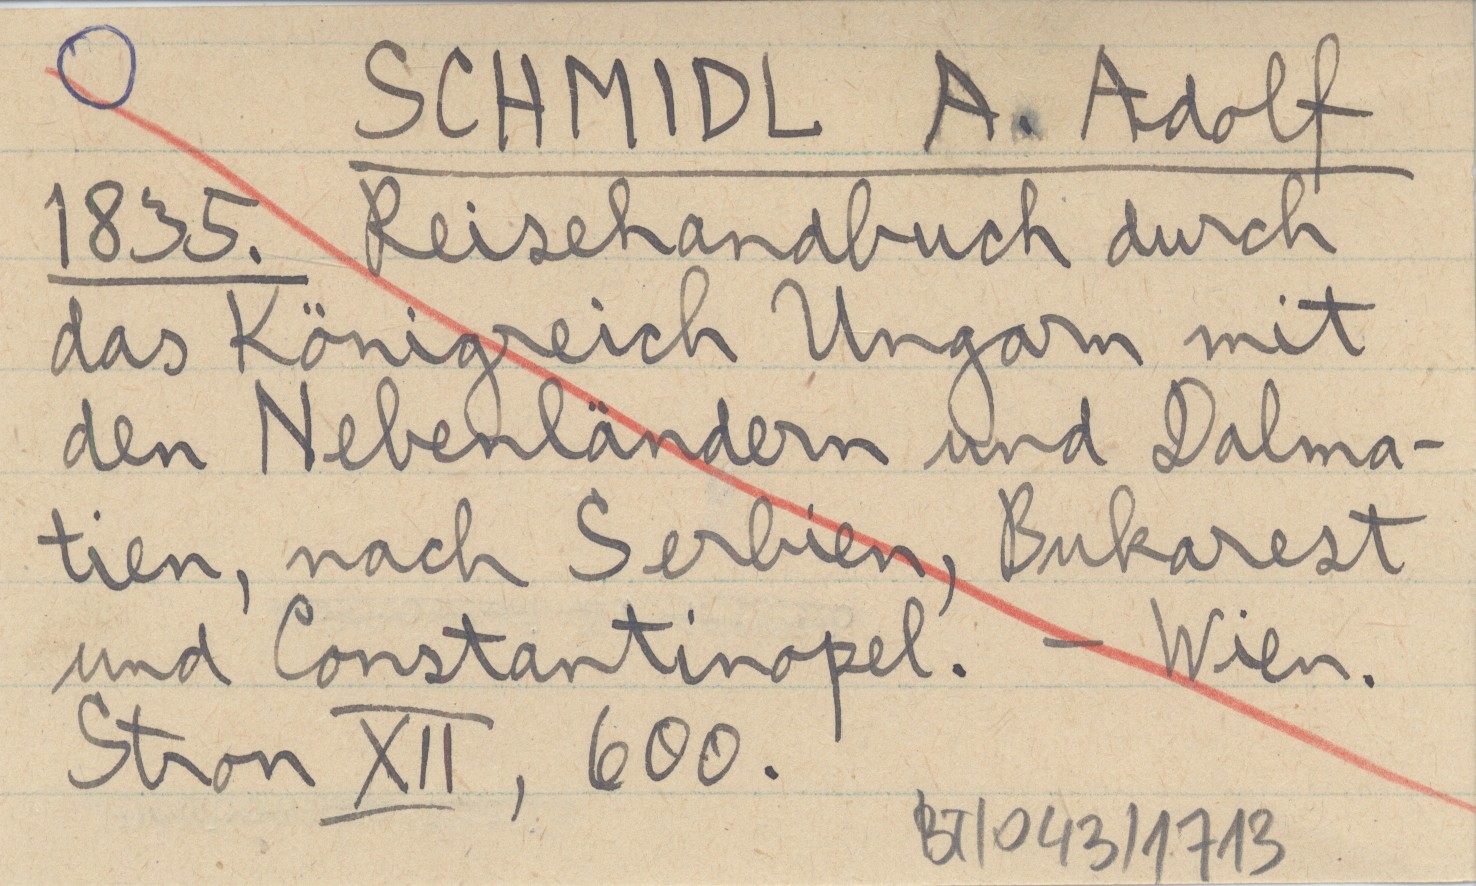 SCHMIDL A. Adolf
1835. Reisehandbuch durch
das Königreich Ungarn mit
den Nebenländern und Dalma-
tien, nach Serbien, Bukarest
und Constantinopel. — Wien.
Stron XII, 600.
BT/043/1713